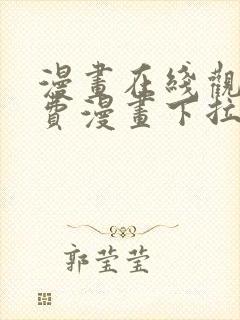 漫畫在綫觀
費漫畫下拉
郭莹莹